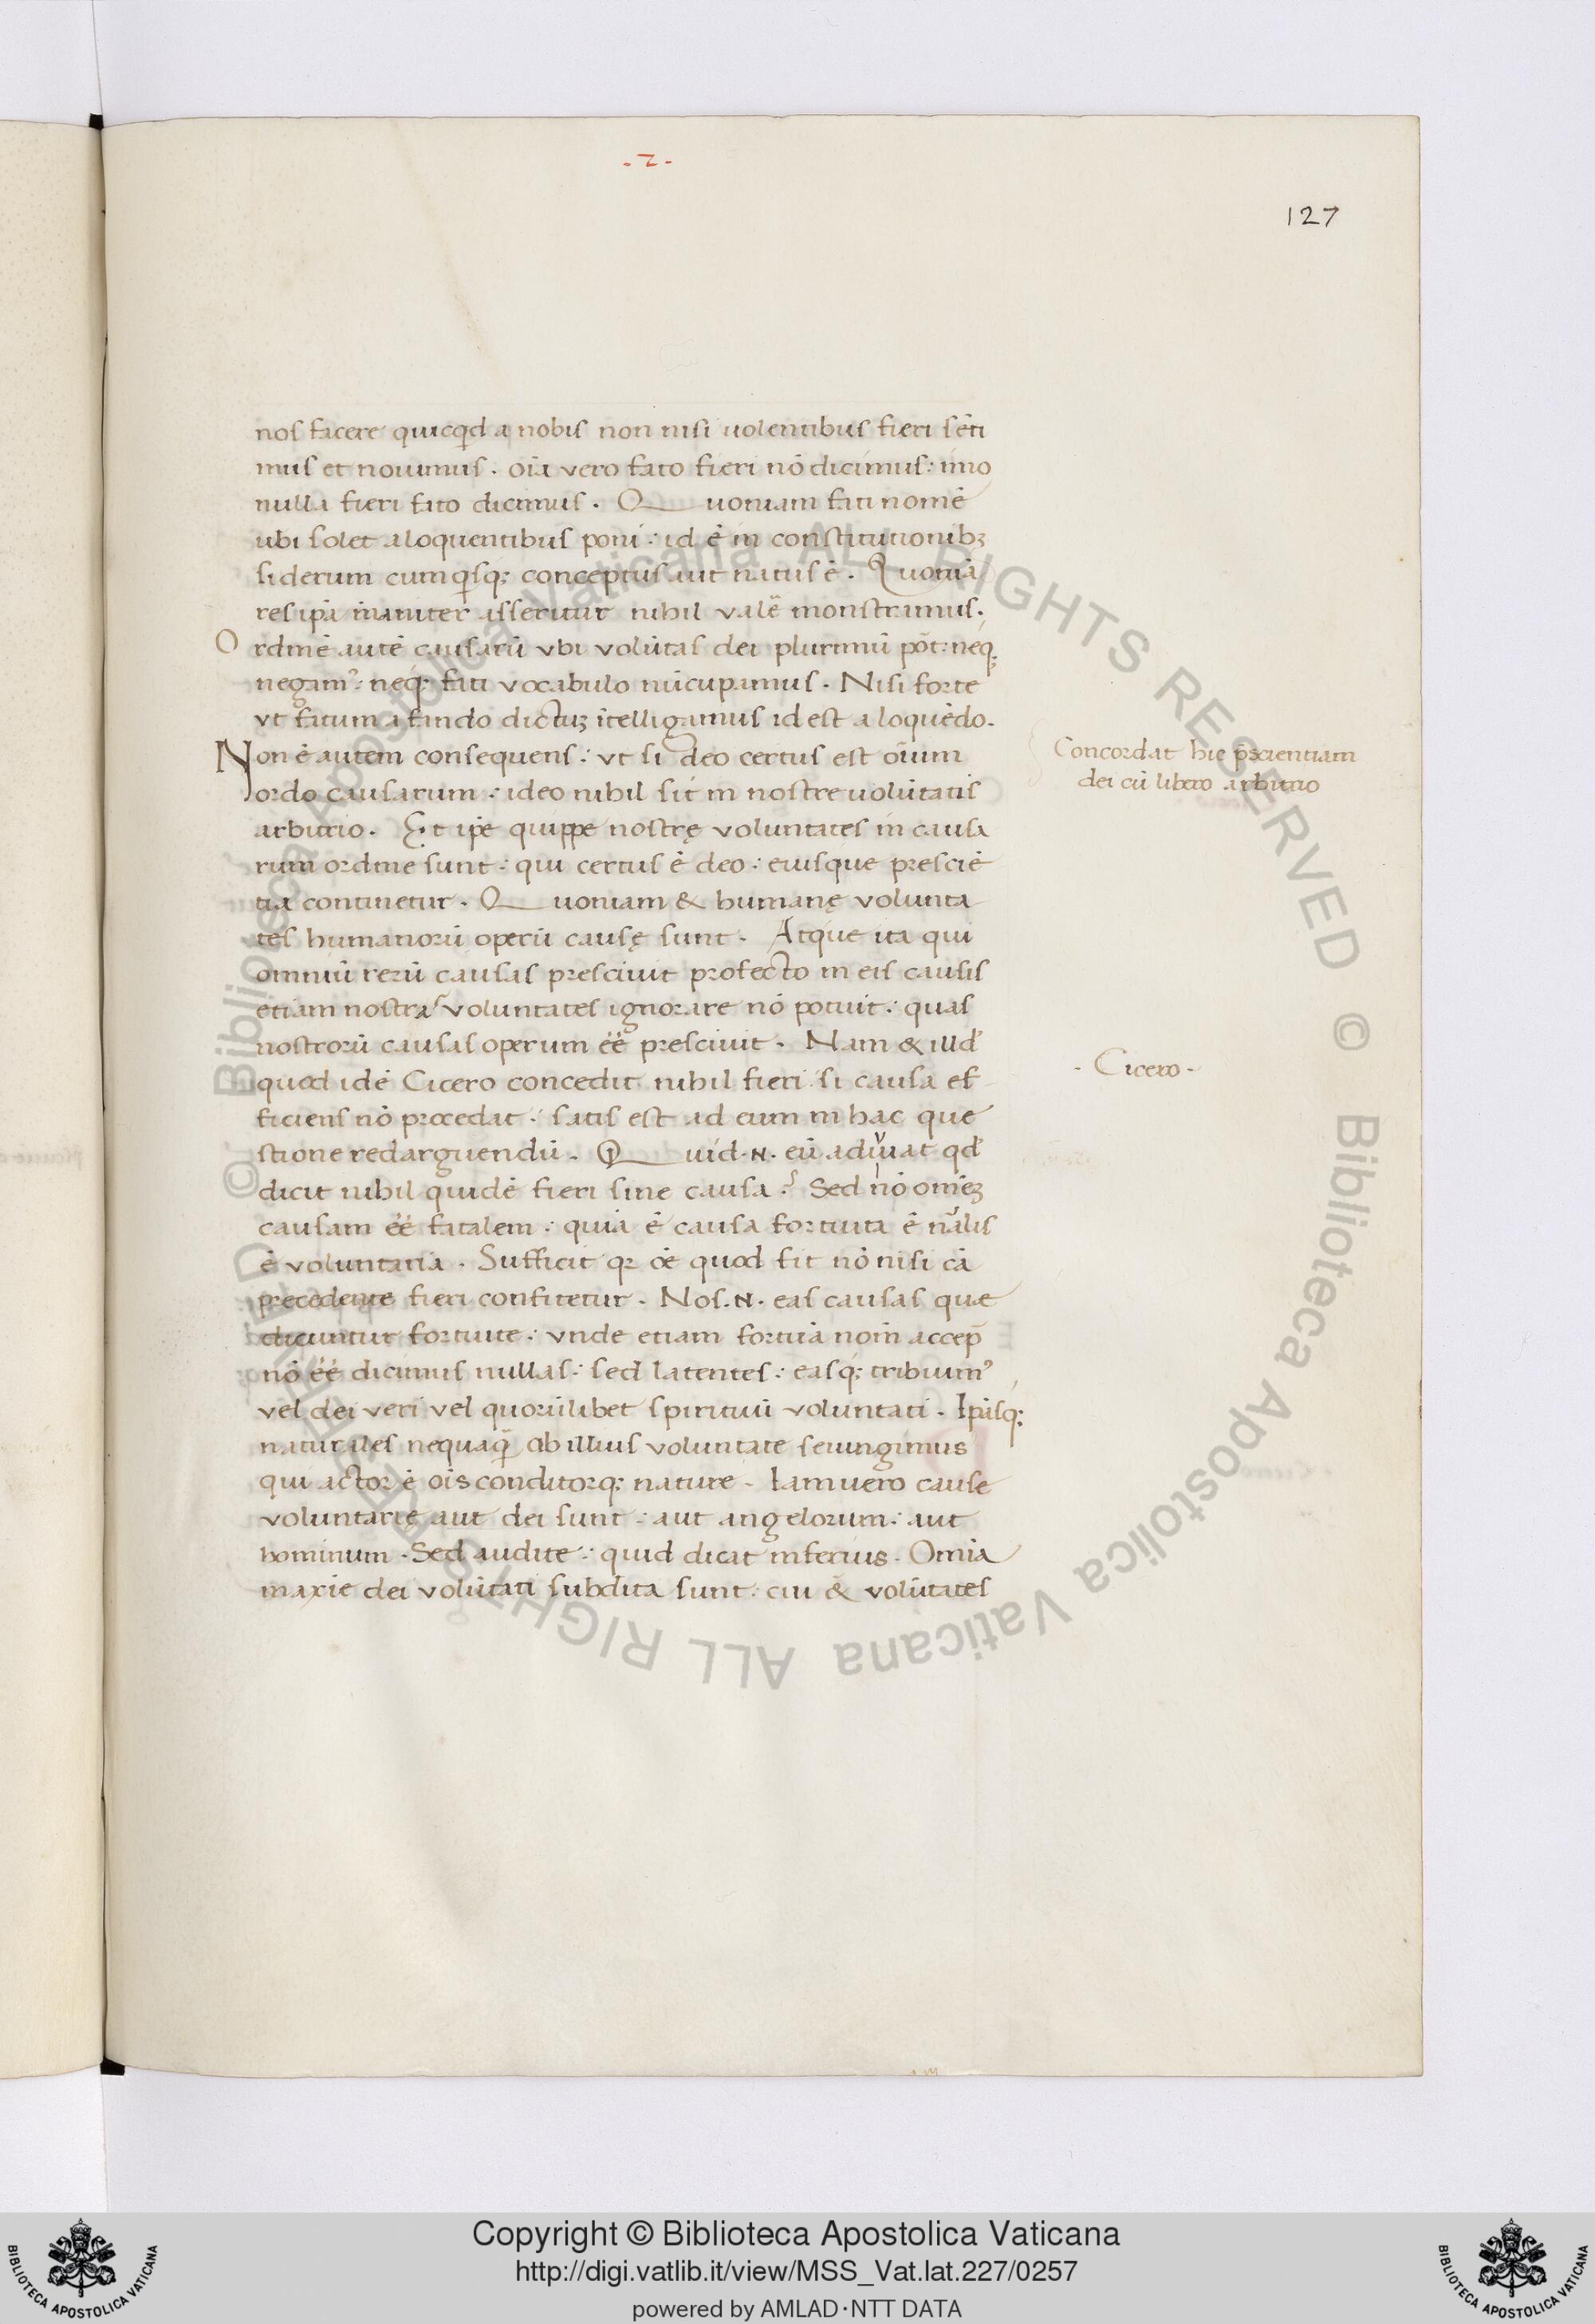 -2-
127
nos facere quicqd a nobis non nisi uolentibus fieri sēti
mus et nouimus. oīa vero fato fieri nō dicimus: imo
nulla fieri fato dicimus. Quoniam fati nomē
ubi solet a loquentibus poni: id ē in constitutionibꝫ
siderum cum qsqꝫ conceptus aut natus ē. Quoniā
res ipā inaniter asseritur nihil valē monstramus.
Ordinē autē causarū vbi volūtas dei plurimū pōt: neqꝫ
negamꝰ: neqꝫ fati vocabulo nūcupamus. Nisi forte
vt fatum a fando dictuꝫ ītelligamus id est a loquēdo.
Non ē autem consequens: vt si deo certus est oīum
ordo causarum: ideo nihil sit in nostre uolūtatis
arbitrio. Et ipē quippe nostrę voluntates in causa
rum ordine sunt: qui certus ē deo: eiusque presciē
tia continetur. Quoniam & humanę volunta
tes humanorū operū causę sunt. Atque ita qui
omniū rerū causas presciuit profecto in eis causis
etiam nostras voluntates ignorare nō potuit: quas
nostrorū causas operum ēē presciuit. Nam & illd
quod idē Cicero concedit nihil fieri si causa ef
ficiens nō precedat: satis est ad eum in hac que
stione redarguendū. Quid .N. eū adiuuat qd
dicit nihil quidē fieri sine causa? Sed nō omēꝫ
causam ēē fatalem: quia ē causa fortuita ē nālis
ē voluntaria. Sufficit qꝛ oē quod fit nō nisi cā
precedente fieri confitetur. Nos .N. eas causas quæ
dicuntur fortuite: vnde etiam fortuā nom̄ accep̄
nō ēē dicimus nullas: sed latentes: easqꝫ tribuimꝰ
vel dei veri vel quorūlibet spirituū voluntati. Ipāsqꝫ
naturales nequaq̄ ab illius voluntate seiungimus
qui actor ē oīs conditorqꝫ nature. Iam uero cause
voluntarię aut dei sunt: aut angelorum: aut
hominum. Sed audite: quid dicat inferius. Omīa
maxīe dei volūtati subdita sunt: cui & volūtates
Concordat hic p̄scientiam
dei cū libero arbitrio
- Cicero -
© Biblioteca Apostolica Vaticana ALL RIGHTS RESERVED © Biblioteca Apostolica Vaticana ALL RIGHTS RESERVED
Copyright © Biblioteca Apostolica Vaticana
http://digi.vatlib.it/view/MSS_Vat.lat.227/0257
powered by AMLAD·NTT DATA
BIBLIOTECA APOSTOLICA VATICANA
BIBLIOTECA APOSTOLICA VATICANA